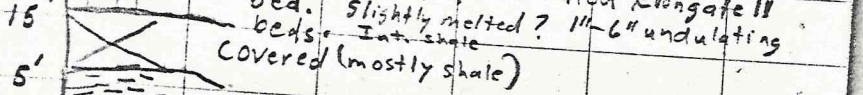 bed. Slightly melted? 1"-6" undulating
15 beds. Int. shale
Covered (mostly shale)
5'